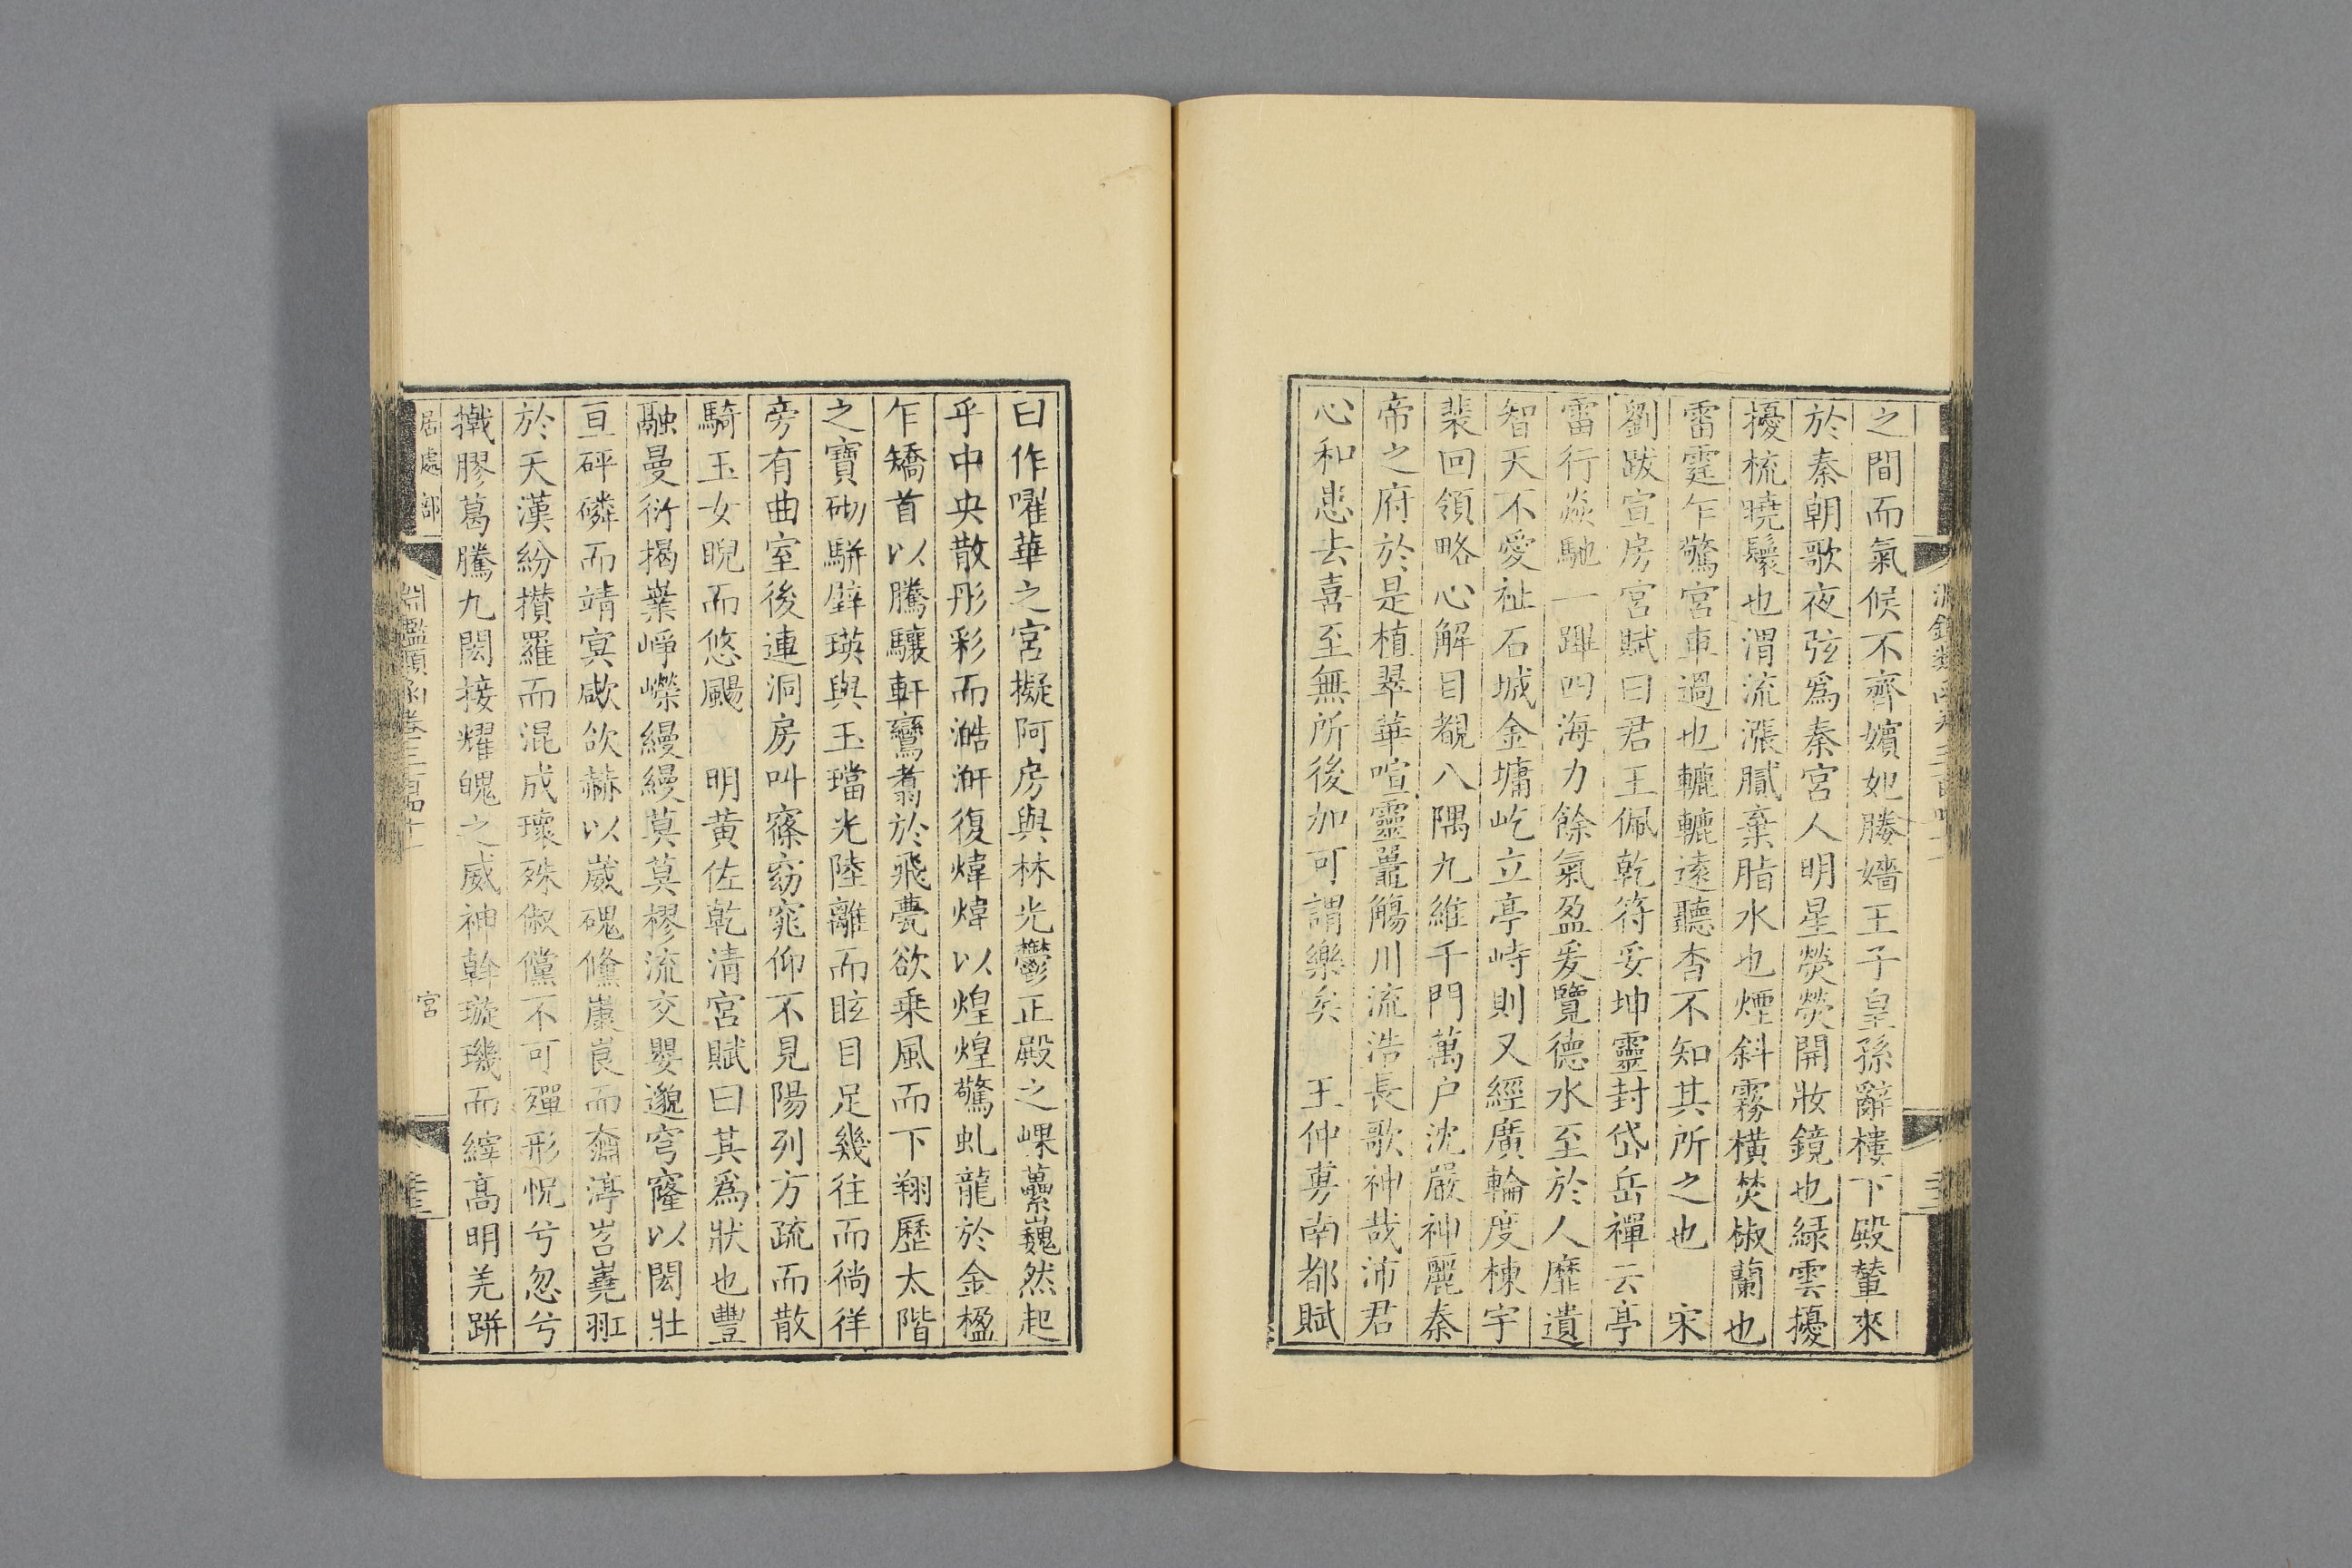 之間而氣候不齊嬪妃媵嬙王子皇孫辭樓下殿輦來
於秦朝歌夜弦爲秦宮人明星熒熒開妝鏡也綠雲擾
擾梳曉鬟也渭流漲膩棄脂水也煙斜霧橫焚椒蘭也
雷霆乍驚宮車過也轆轆遠聽杳不知其所之也 宋
劉跋宣房宮賦曰君王佩乾符妥坤靈封岱岳禪云亭
雷行焱馳一蹕四海力餘氣盈爰覽德水至於人靡遺
智天不愛祉石城金墉屹立亭峙則又經廣輪度棟宇
裴回領略心解目覩八隅九維千門萬户沈嚴神麗秦
帝之府於是植翠華喧靈鼉觴川流浩長歌神哉沛君
心和恚去喜至無所後加可謂樂矣 王仲旉南都賦
曰作曜華之宮擬阿房與林光鬱正殿之𡸖蘽巍然起
乎中央散彤彩而澔汗復煒煒以煌煌驚虬龍於金楹
乍矯首以騰驤軒鸞翥於飛甍欲乗風而下翔歷太階
之寶砌駢璧瑛與玉璫光陸離而眩目足幾往而徜徉
旁有曲室後連洞房叫窱窈窕仰不見陽列方疏而散
騎玉女睨而悠颺 明黄佐乾清宮賦曰其爲狀也豐
融曼衍揭嶪崢嶸縵縵莫莫樛流交嬰邈穹窿以閎壯
亘砰磷而靖寘歘欱赫以崴磈儵㠠崀而奫渟岧嶤䂬
於天漢紛攢羅而混成瓌殊俶儻不可殫形怳兮忽兮
撠膠葛騰九閎接耀魄之威神斡璇璣而縡高明羌跰
居處部
淵鑑類函卷三百四十一
宮